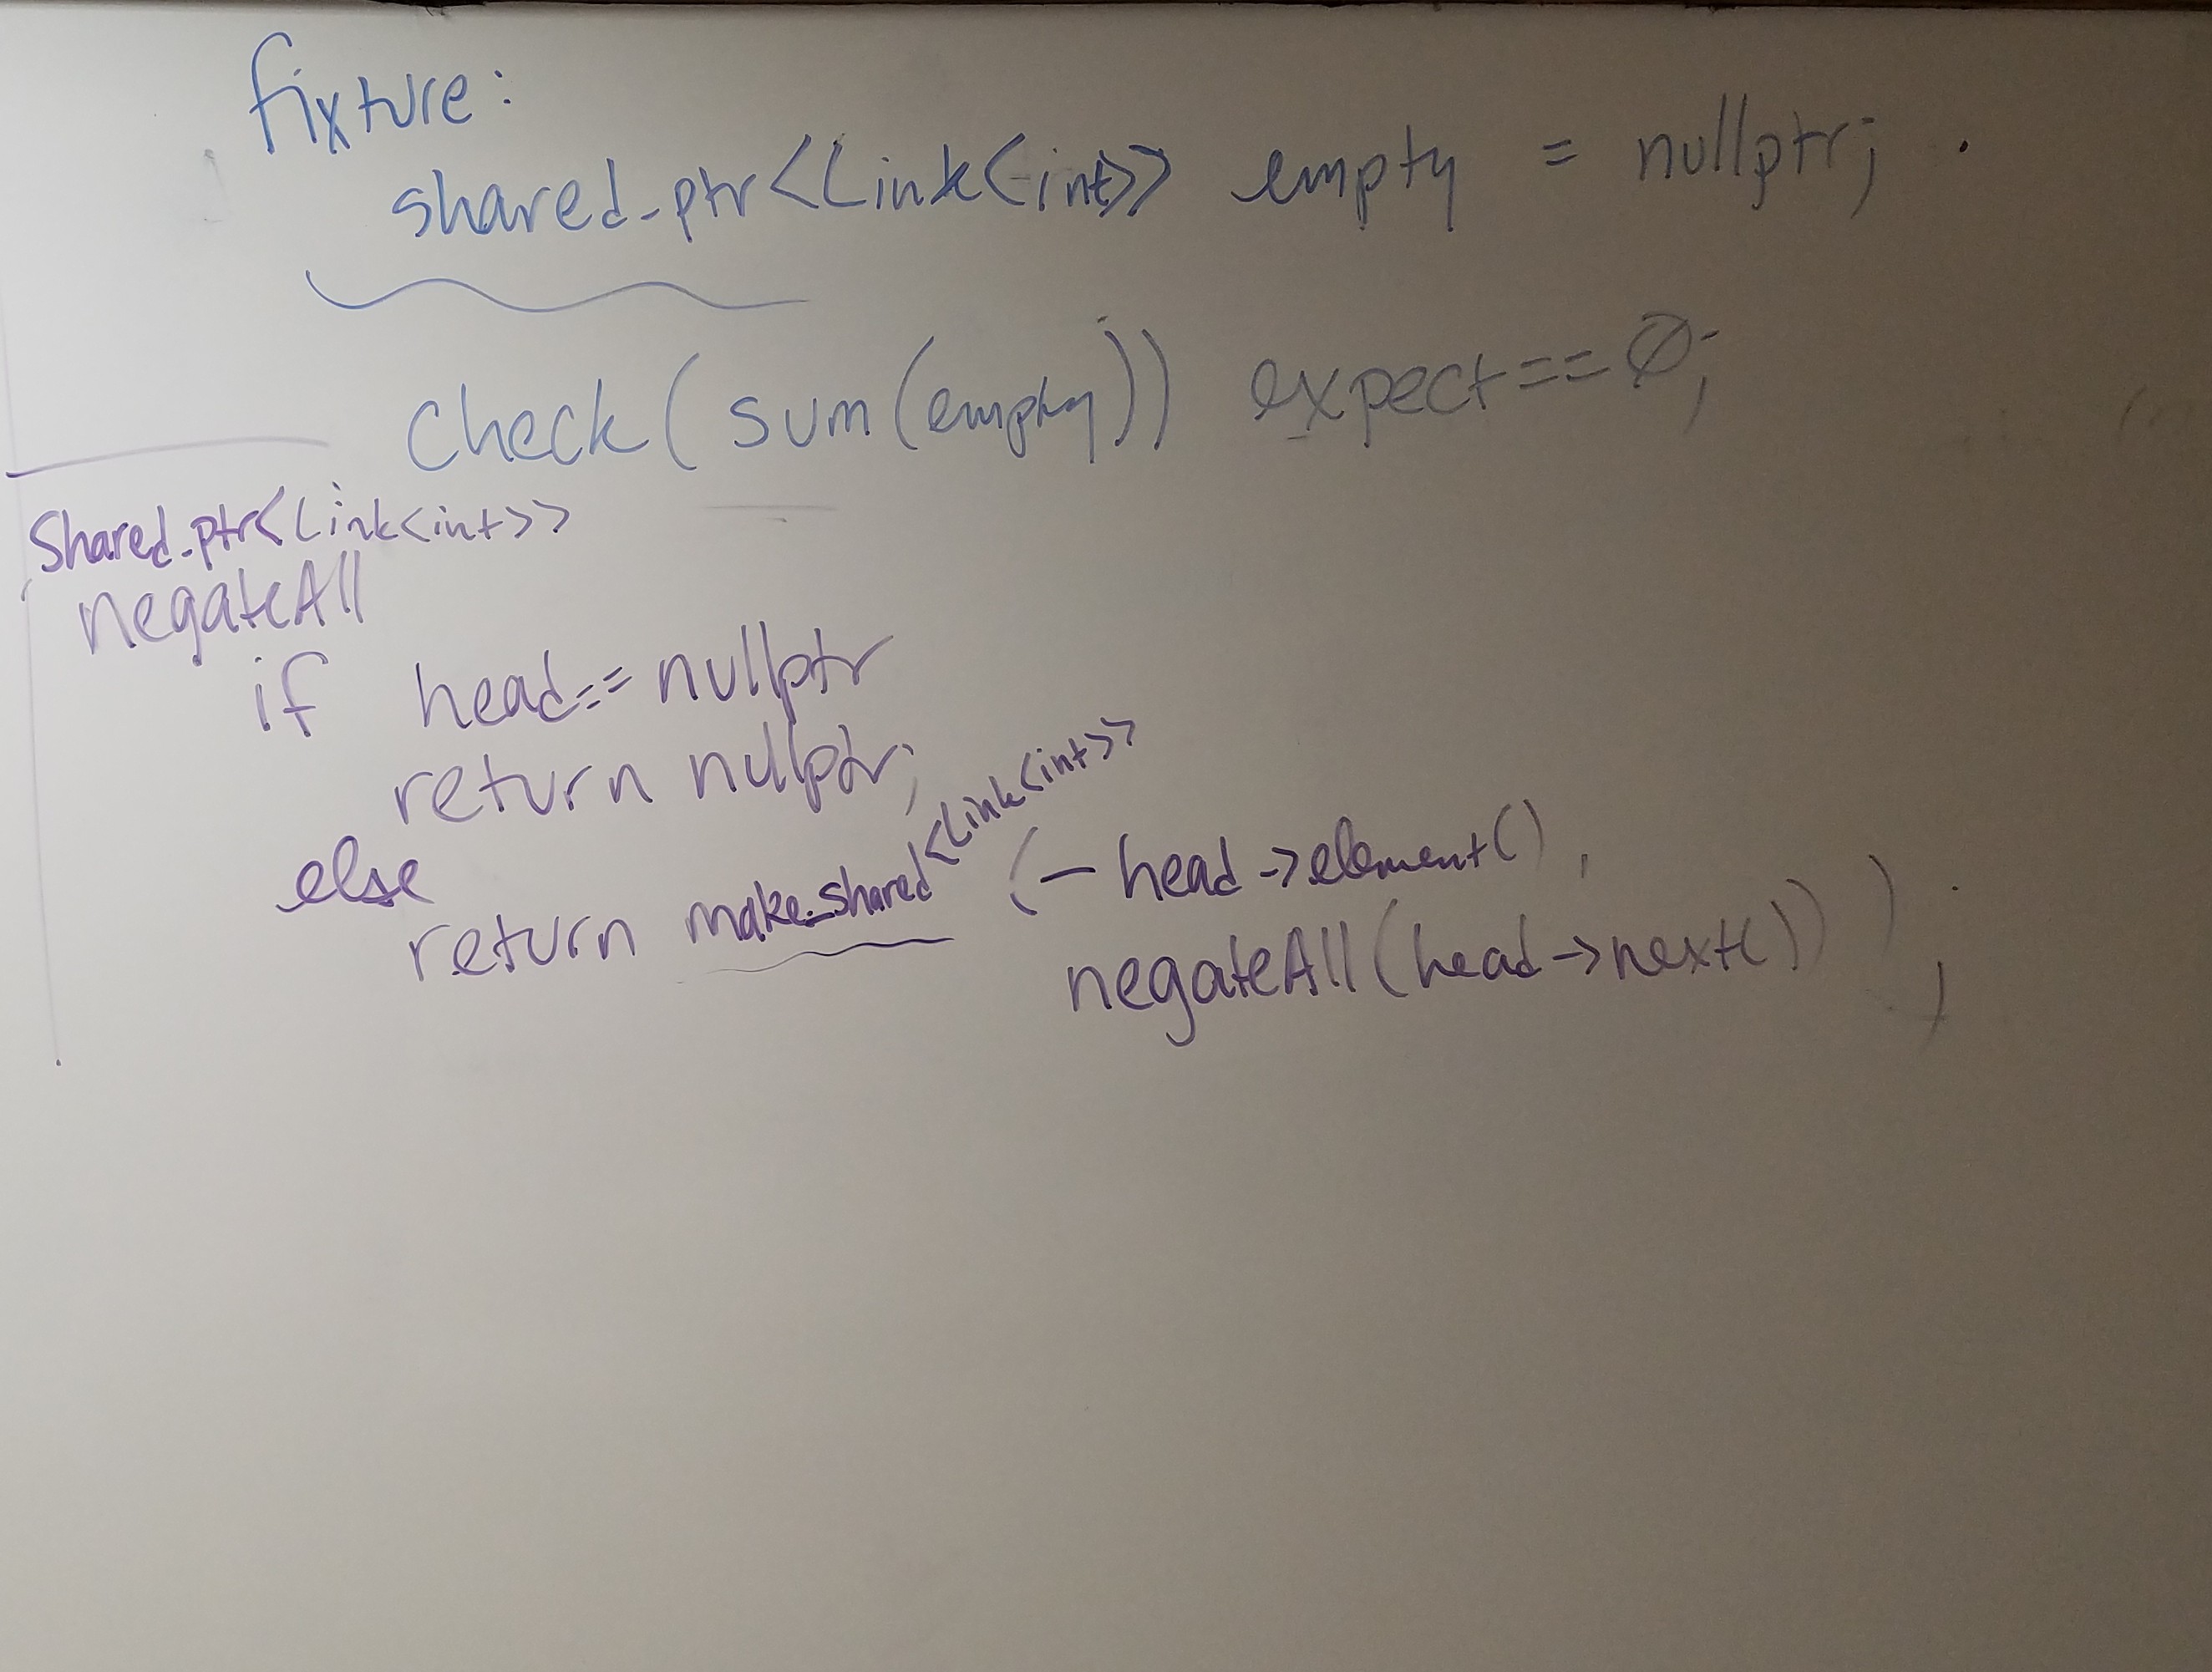 fixture:
shared_ptr<Link<int>> empty = nullptr;
check(sum(empty)) expect==0;
Shared_ptr<Link<int>>
negateAll
if head==nullptr
return nullptr;
else
return make_shared<Link<int>> (-head->element(),
negateAll(head->next()));